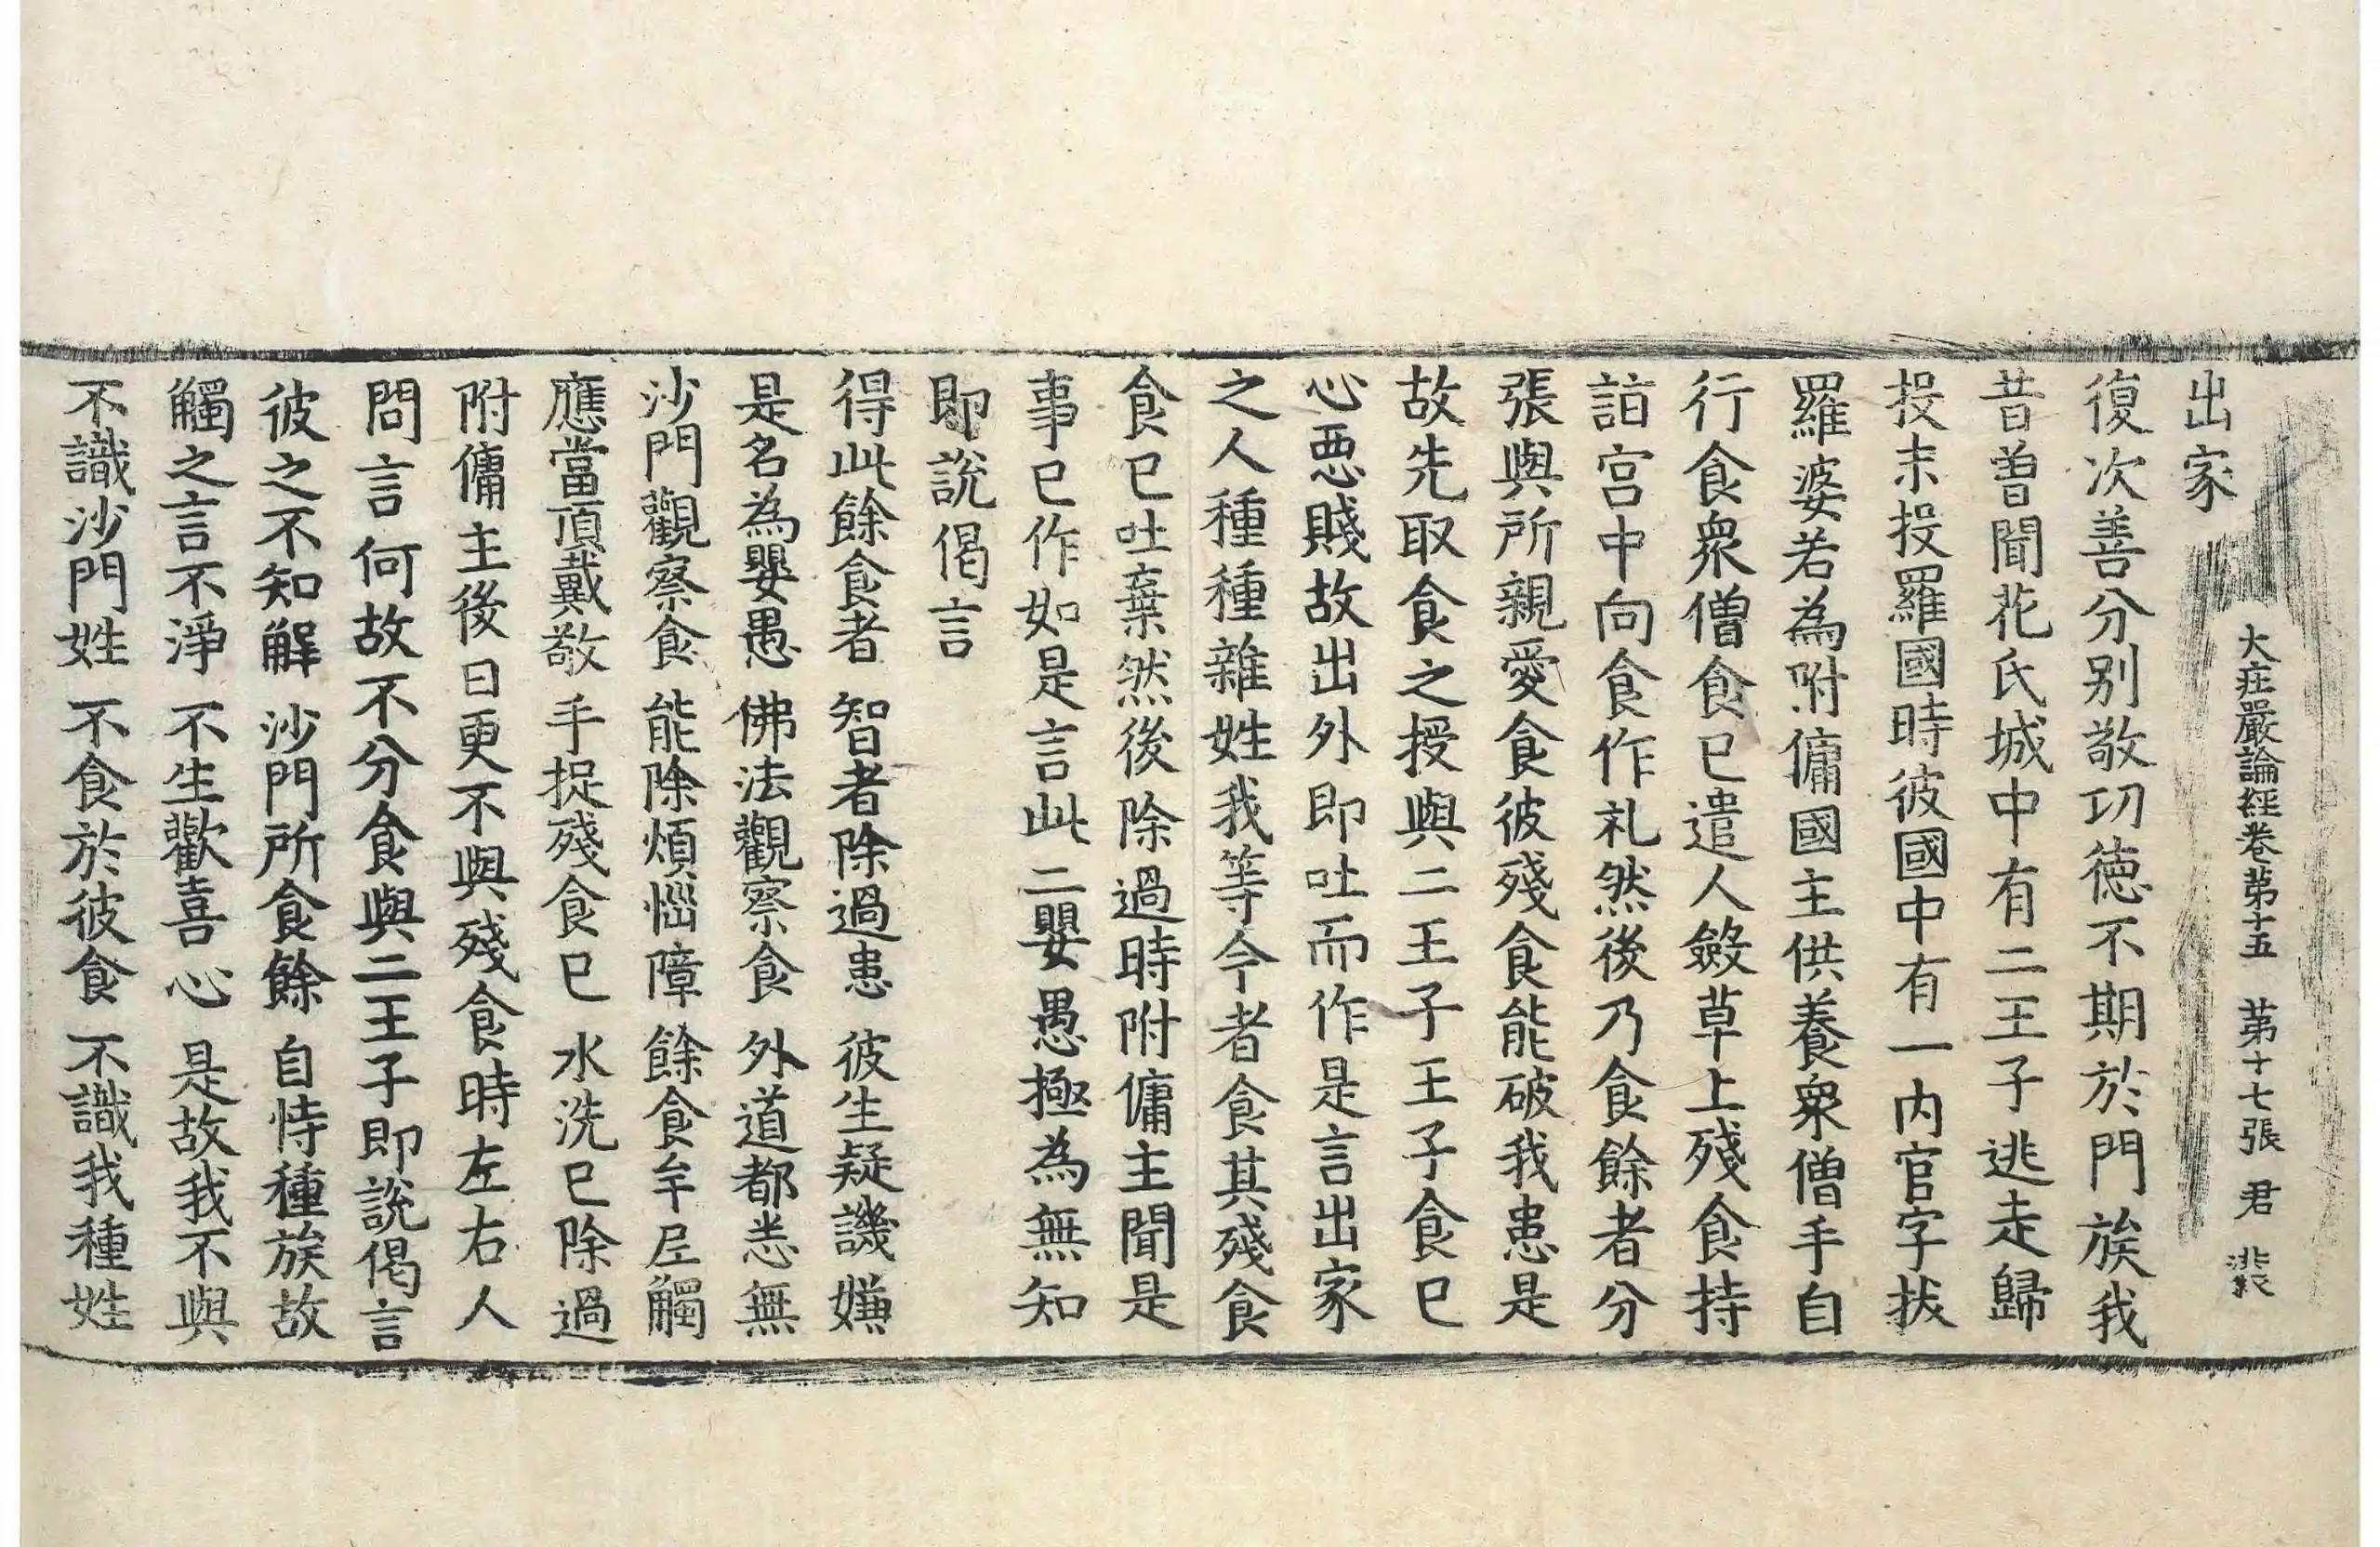 大莊嚴論經卷苐十五　苐十七張　君
出家
復次善分别敬功德不期於門族我
昔曽聞花氏城中有二王子逃走歸
投末投羅國時彼國中有一内官字拔
羅婆若為附傭國主供養衆僧手自
行食衆僧食已遣人斂草上殘食持
詣宫中向食作礼然後乃食餘者分
張與所親愛食彼殘食能破我患是
故先取食之授與二王子王子食已
心惡賤故出外即吐而作是言出家
之人種種雜姓我等今者食其殘食
食已吐棄然後除過時附傭主聞是
事已作如是言此二嬰愚極為無知
即說偈言
得此餘食者　智者除過患　彼生疑譏嫌
是名為嬰愚　佛法觀察食　外道都悉無
沙門觀察食　能除煩惱障　餘食牟尼觸
應當頂戴敬　手捉殘食已　水洗已除過
附傭主後日更不與殘食時左右人
問言何故不分食與二王子即說偈言
彼之不知解　沙門所食餘　自恃種族故
觸之言不淨　不生歡喜心　是故我不與
不識沙門姓　不食於彼食　不識我種姓